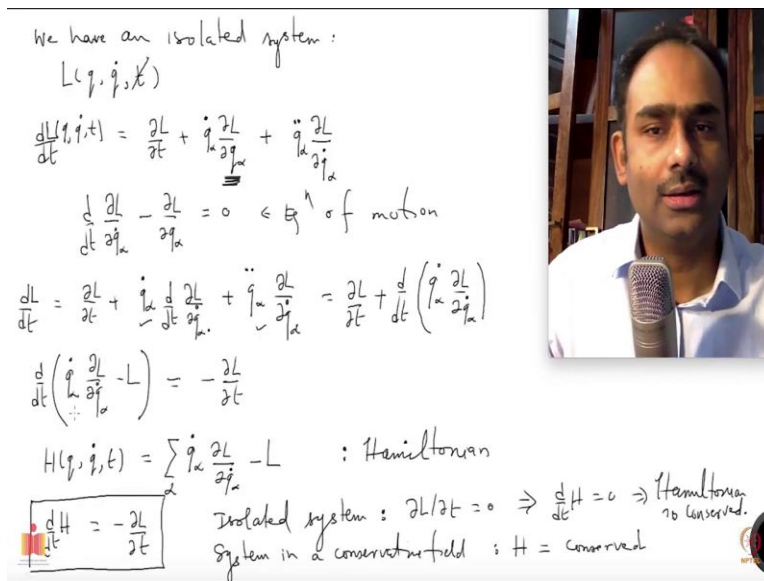 We have an isolated system :
L(q, q̇, t̸)
dL(q, q̇, t)/dt = ∂L/∂t + q̇_α ∂L/∂q_α + q̈_α ∂L/∂q̇_α
d/dt ∂L/∂q̇_α − ∂L/∂q_α = 0 ← Eqⁿ of motion
dL/dt = ∂L/∂t + q̇_α d/dt ∂L/∂q̇_α + q̈_α ∂L/∂q̇_α = ∂L/∂t + d/dt (q̇_α ∂L/∂q̇_α)
d/dt (q̇_α ∂L/∂q̇_α − L) = − ∂L/∂t
H(q, q̇, t) = ∑_α q̇_α ∂L/∂q̇_α − L : Hamiltonian
d/dt H = − ∂L/∂t
Isolated system : ∂L/∂t = 0 ⇒ d/dt H = 0 ⇒ Hamiltonian is conserved.
System in a conservative field : H = conserved
NPTEL